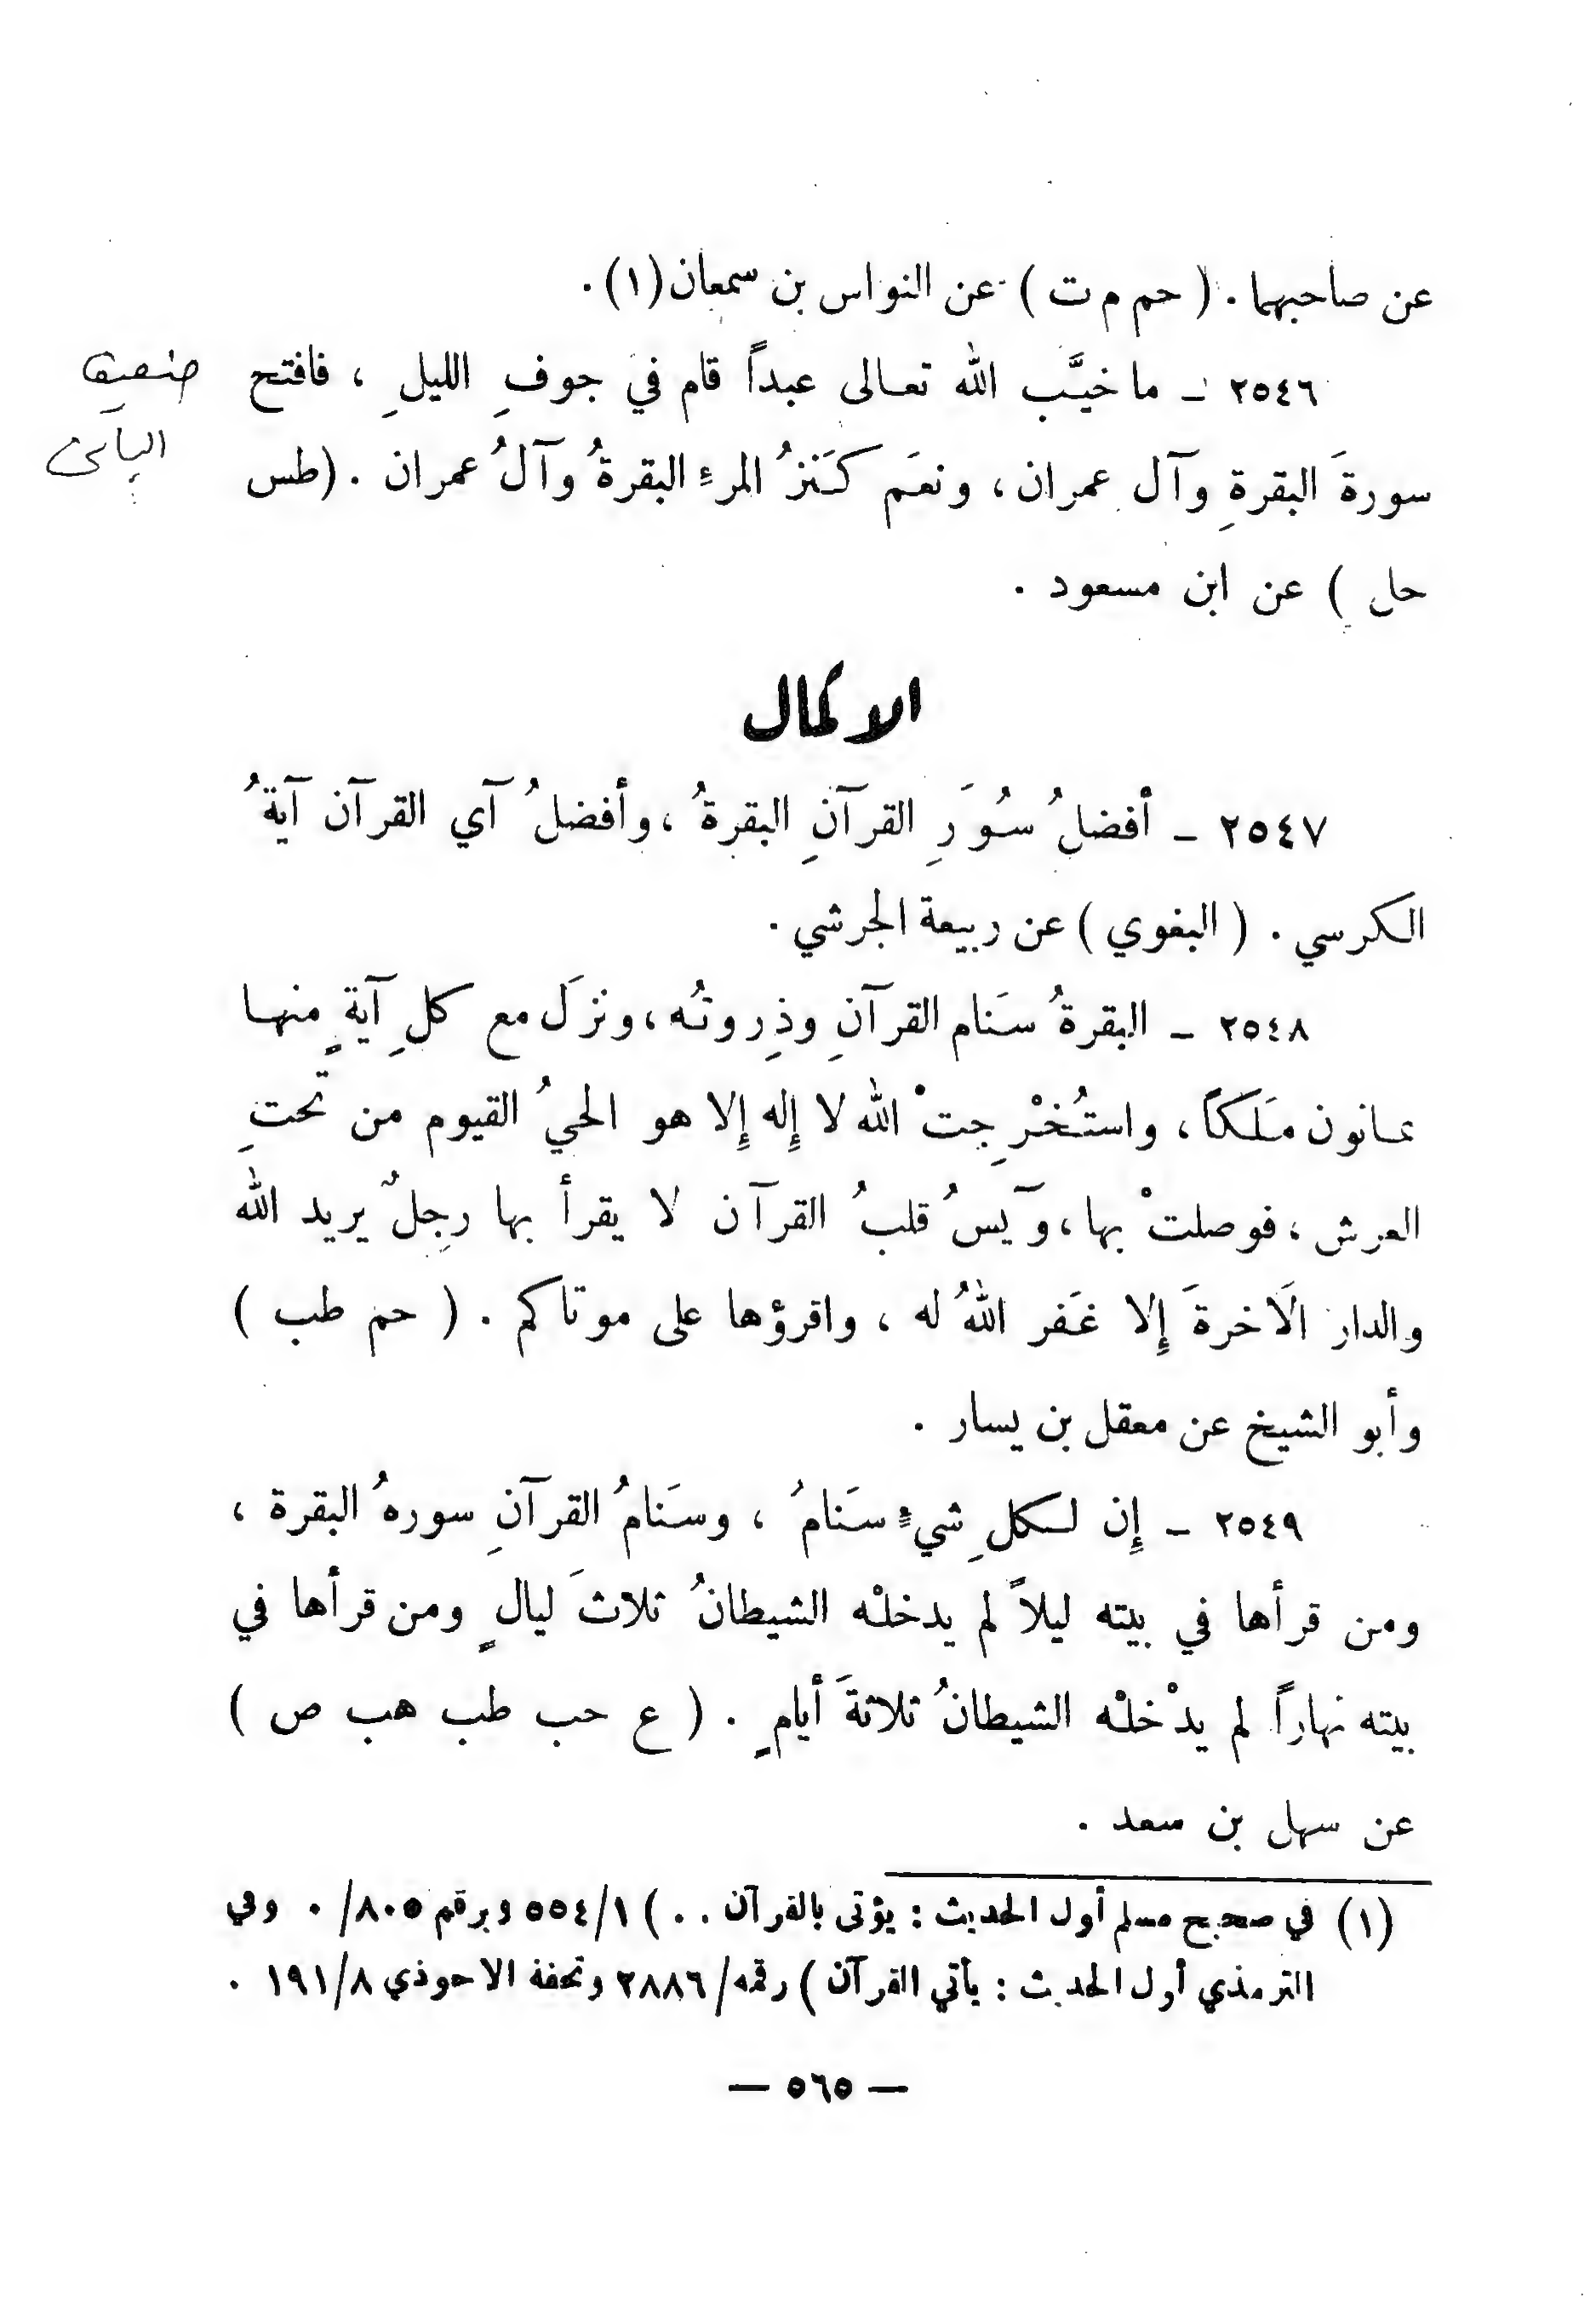 عن صاحبهما . ( حم م ت ) عن النواس بن سمعان (١) .
٢٥٤٦ ـ ما خيَّب الله تعالى عبداً قام في جوفِ الليلِ ، فافتح
ضعيف
سورةَ البقرةِ وآل عمران ، ونعَم كَنزُ المرءِ البقرةُ وآلُ عمران . ( طس
حل ) عن ابن مسعود .
الاكمال
٢٥٤٧ ـ أفضلُ سُوَرِ القرآنِ البقرةُ ، وأفضلُ آي القرآن آيةُ
الكرسي . ( البغوي ) عن ربيعة الجرشي .
٢٥٤٨ ـ البقرةُ سَنام القرآنِ وذِروتُه ، ونزلَ مع كلِ آيةٍ منها
ثمانون مَلَكاً ، واستُخْرِجتْ الله لا إِله إِلا هو الحيُ القيوم من تحتِ
العرش ، فوصلتْ بها ، وآيسُ قلبُ القرآن لا يقرأ بها رجلٌ يريد الله
والدار الآخرةَ إِلا غَفر اللهُ له ، واقرؤها على موتاكم . ( حم طب )
وأبو الشيخ عن معقل بن يسار .
٢٥٤٩ ـ إِن لكلِ شيءٍ سَنامُ ، وسَنامُ القرآنِ سورهُ البقرة ،
ومن قرأها في بيته ليلاً لم يدخلْه الشيطانُ ثلاثَ ليالٍ ومن قرأها في
بيته نهاراً لم يدْخلْه الشيطانُ ثلاثةَ أيامٍ . ( ع حب طب هب ص )
عن سهل بن سعد .
(١) في صحيح مسلم أول الحديث : يؤتى بالقرآن . . ) ٥٥٤/١ وبرقم ٨٠٥/ . وفي
الترمذي أول الحديث : يأتي القرآن ) رقمه/ ٢٨٨٦ وتحفة الاحوذي ١٩١/٨ .
— ٥٦٥ —